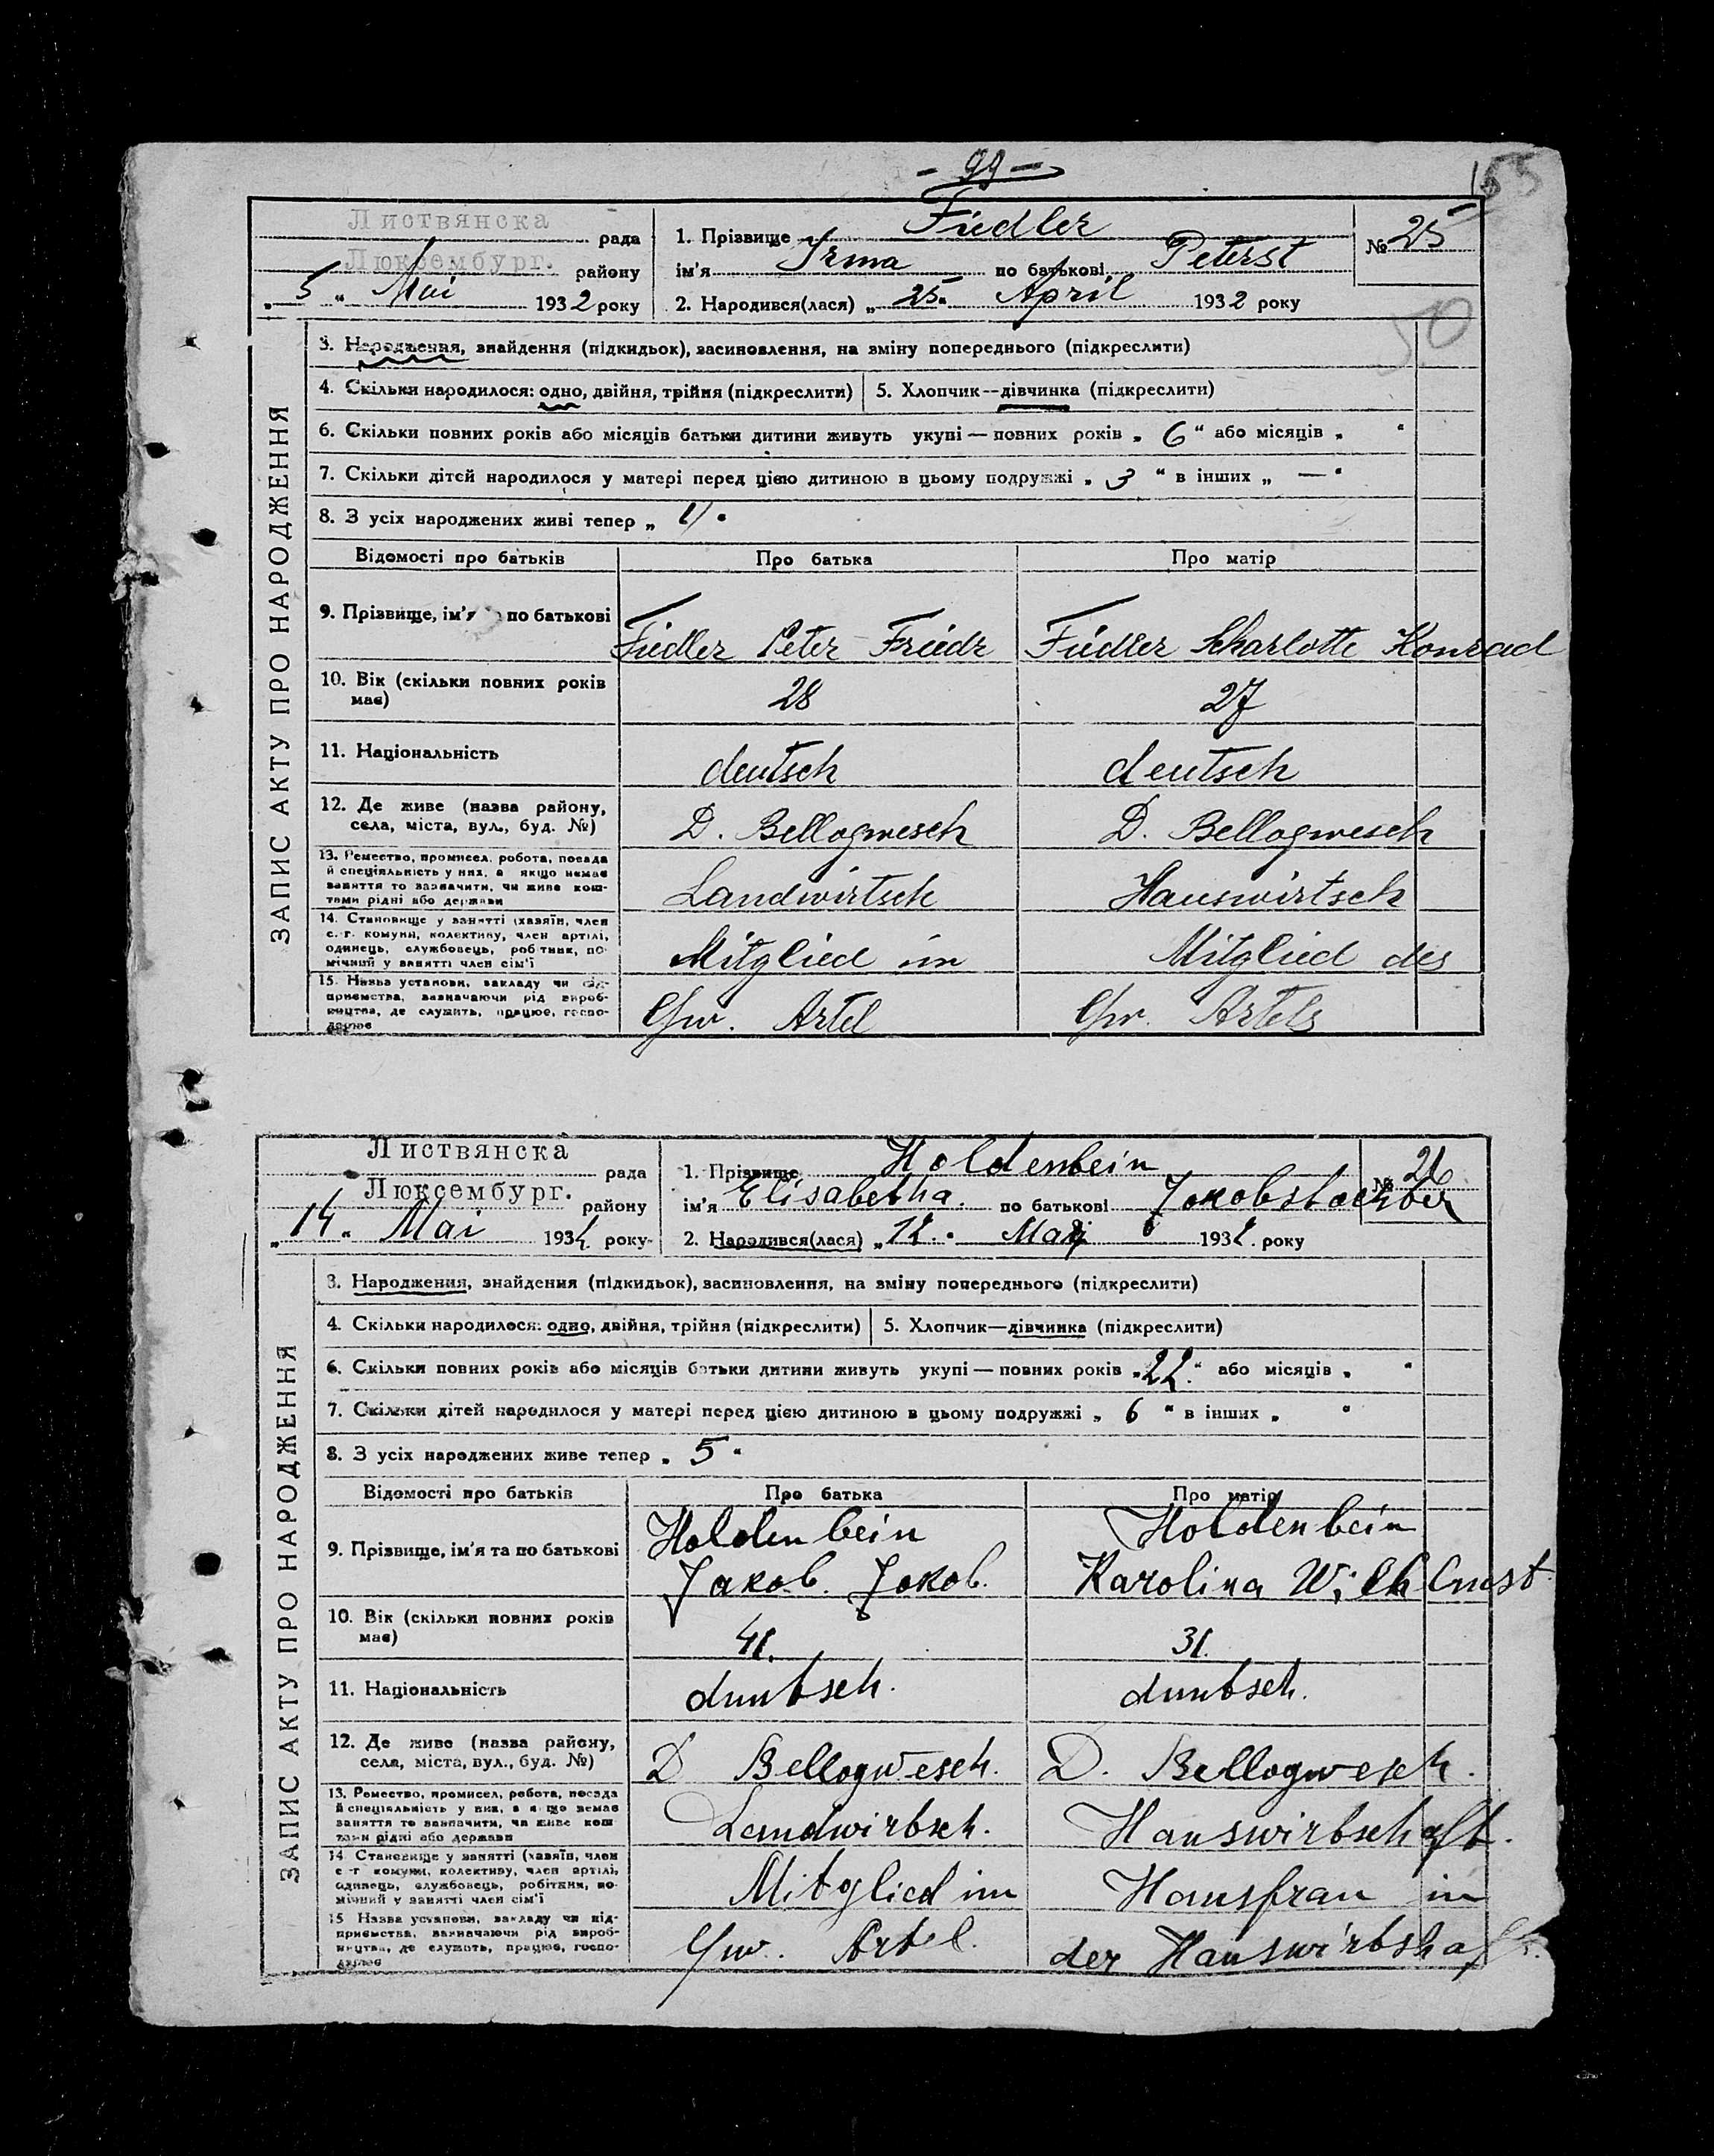 - 99 -
155
Листвянска рада
Люксембург. району
„ 5 " Mai 1932 року
1. Прізвище Fiedler
ім'я Irma по батькові Peterst
2. Народився(лася) „ 25. April 1932 року
№ 25
50
ЗАПИС АКТУ ПРО НАРОДЖЕННЯ
3. Народження, знайдення (підкидьок), засиновлення, на зміну попереднього (підкреслити)
4. Скільки народилося: одно, двійня, трійня (підкреслити)
5. Хлопчик—дівчинка (підкреслити)
6. Скільки повних років або місяців батьки дитини живуть укупі — повних років „ 6 " або місяців „ "
7. Скільки дітей народилося у матері перед цією дитиною в цьому подружжі „ 3 " в інших „ — "
8. З усіх народжених живі тепер „ "
Відомості про батьків
Про батька
Про матір
9. Прізвище, ім'я по батькові
Fiedler Peter Friedr
Fiedler Scharlotte Konrad
10. Вік (скільки повних років має)
28
27
11. Національність
deutsch
deutsch
12. Де живе (назва району, села, міста, вул., буд. №)
D. Bellogwesch
D. Bellogwesch
13. Ремество, промисел, робота, посада й спеціяльність у них, а якщо немає заняття то зазначити, чи живе коштами рідні або держави
Landwirtsch
Hauswirtsch
14. Становище у занятті (хазяїн, член с.-г. комуни, колективу, член артілі, одинець, службовець, робітник, помічний у занятті член сім'ї
Mitglied im
Mitglied des
15. Назва установи, закладу чи підприємства, зазначаючи рід виробництва, де служить, працює, господарює
Gw. Artel
Gw. Artels
Листвянска рада
Люксембург. району
„ 14 " Mai 1932 року
1. Прізвище Holdenbein
ім'я Elisabetha. по батькові Jakobstochter
2. Народився(лася) „ 12. " Mai 1932. року
№ 26
ЗАПИС АКТУ ПРО НАРОДЖЕННЯ
3. Народження, знайдення (підкидьок), засиновлення, на зміну попереднього (підкреслити)
4. Скільки народилося: одно, двійня, трійня (підкреслити)
5. Хлопчик—дівчинка (підкреслити)
6. Скільки повних років або місяців батьки дитини живуть укупі — повних років „ 22. " або місяців „ "
7. Скільки дітей народилося у матері перед цією дитиною в цьому подружжі „ 6 " в інших „ "
8. З усіх народжених живе тепер „ 5 "
Відомості про батьків
Про батька
Про матір
9. Прізвище, ім'я та по батькові
Holdenbein
Jakob. Jakob.
Holdenbein
Karolina Wilhelmst
10. Вік (скільки повних років має)
41.
31.
11. Національність
deutsch.
deutsch.
12. Де живе (назва району, села, міста, вул., буд. №)
D Bellogwesch.
D. Bellogwesch.
13. Ремество, промисел, робота, посада й спеціяльність у них, а якщо немає заняття то зазначити, чи живе коштами рідні або держави
Landwirtsch.
Hauswirtschaft.
14. Становище у занятті (хазяїн, член с.-г. комуни, колективу, член артілі, одинець, службовець, робітник, помічний у занятті член сім'ї
Mitglied im
Hausfrau in
15. Назва установи, закладу чи підприємства, зазначаючи рід виробництва, де служить, працює, господарює
Gw. Artel.
der Hauswirtshaft.